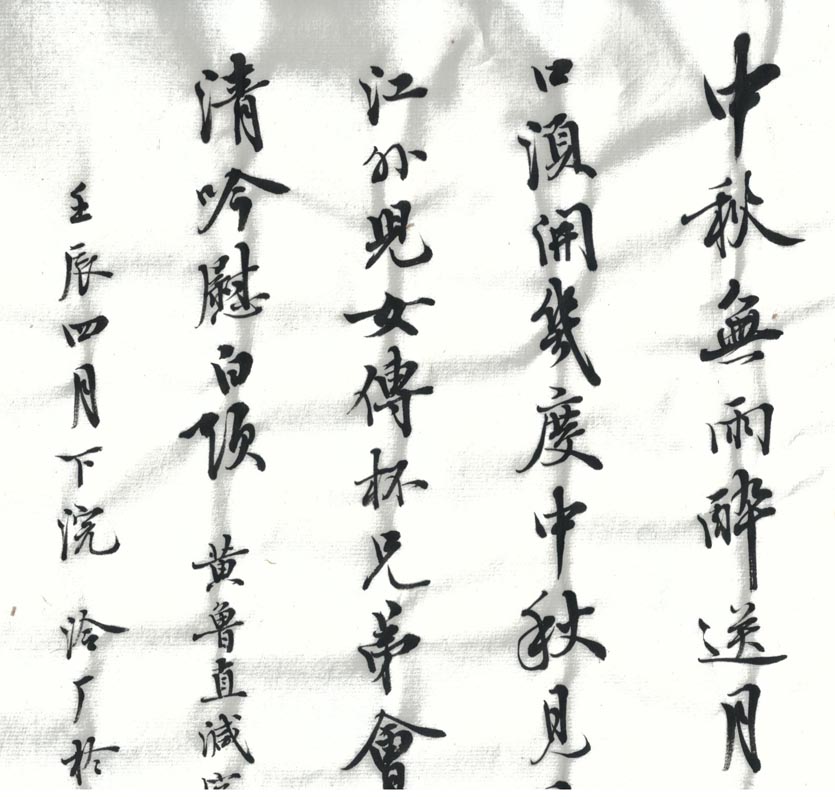 中秋無雨醉送月
口須開幾度中秋見
江外兒女傳杯兄弟會
清吟慰白頭 黃魯直減字
壬辰四月下浣 於